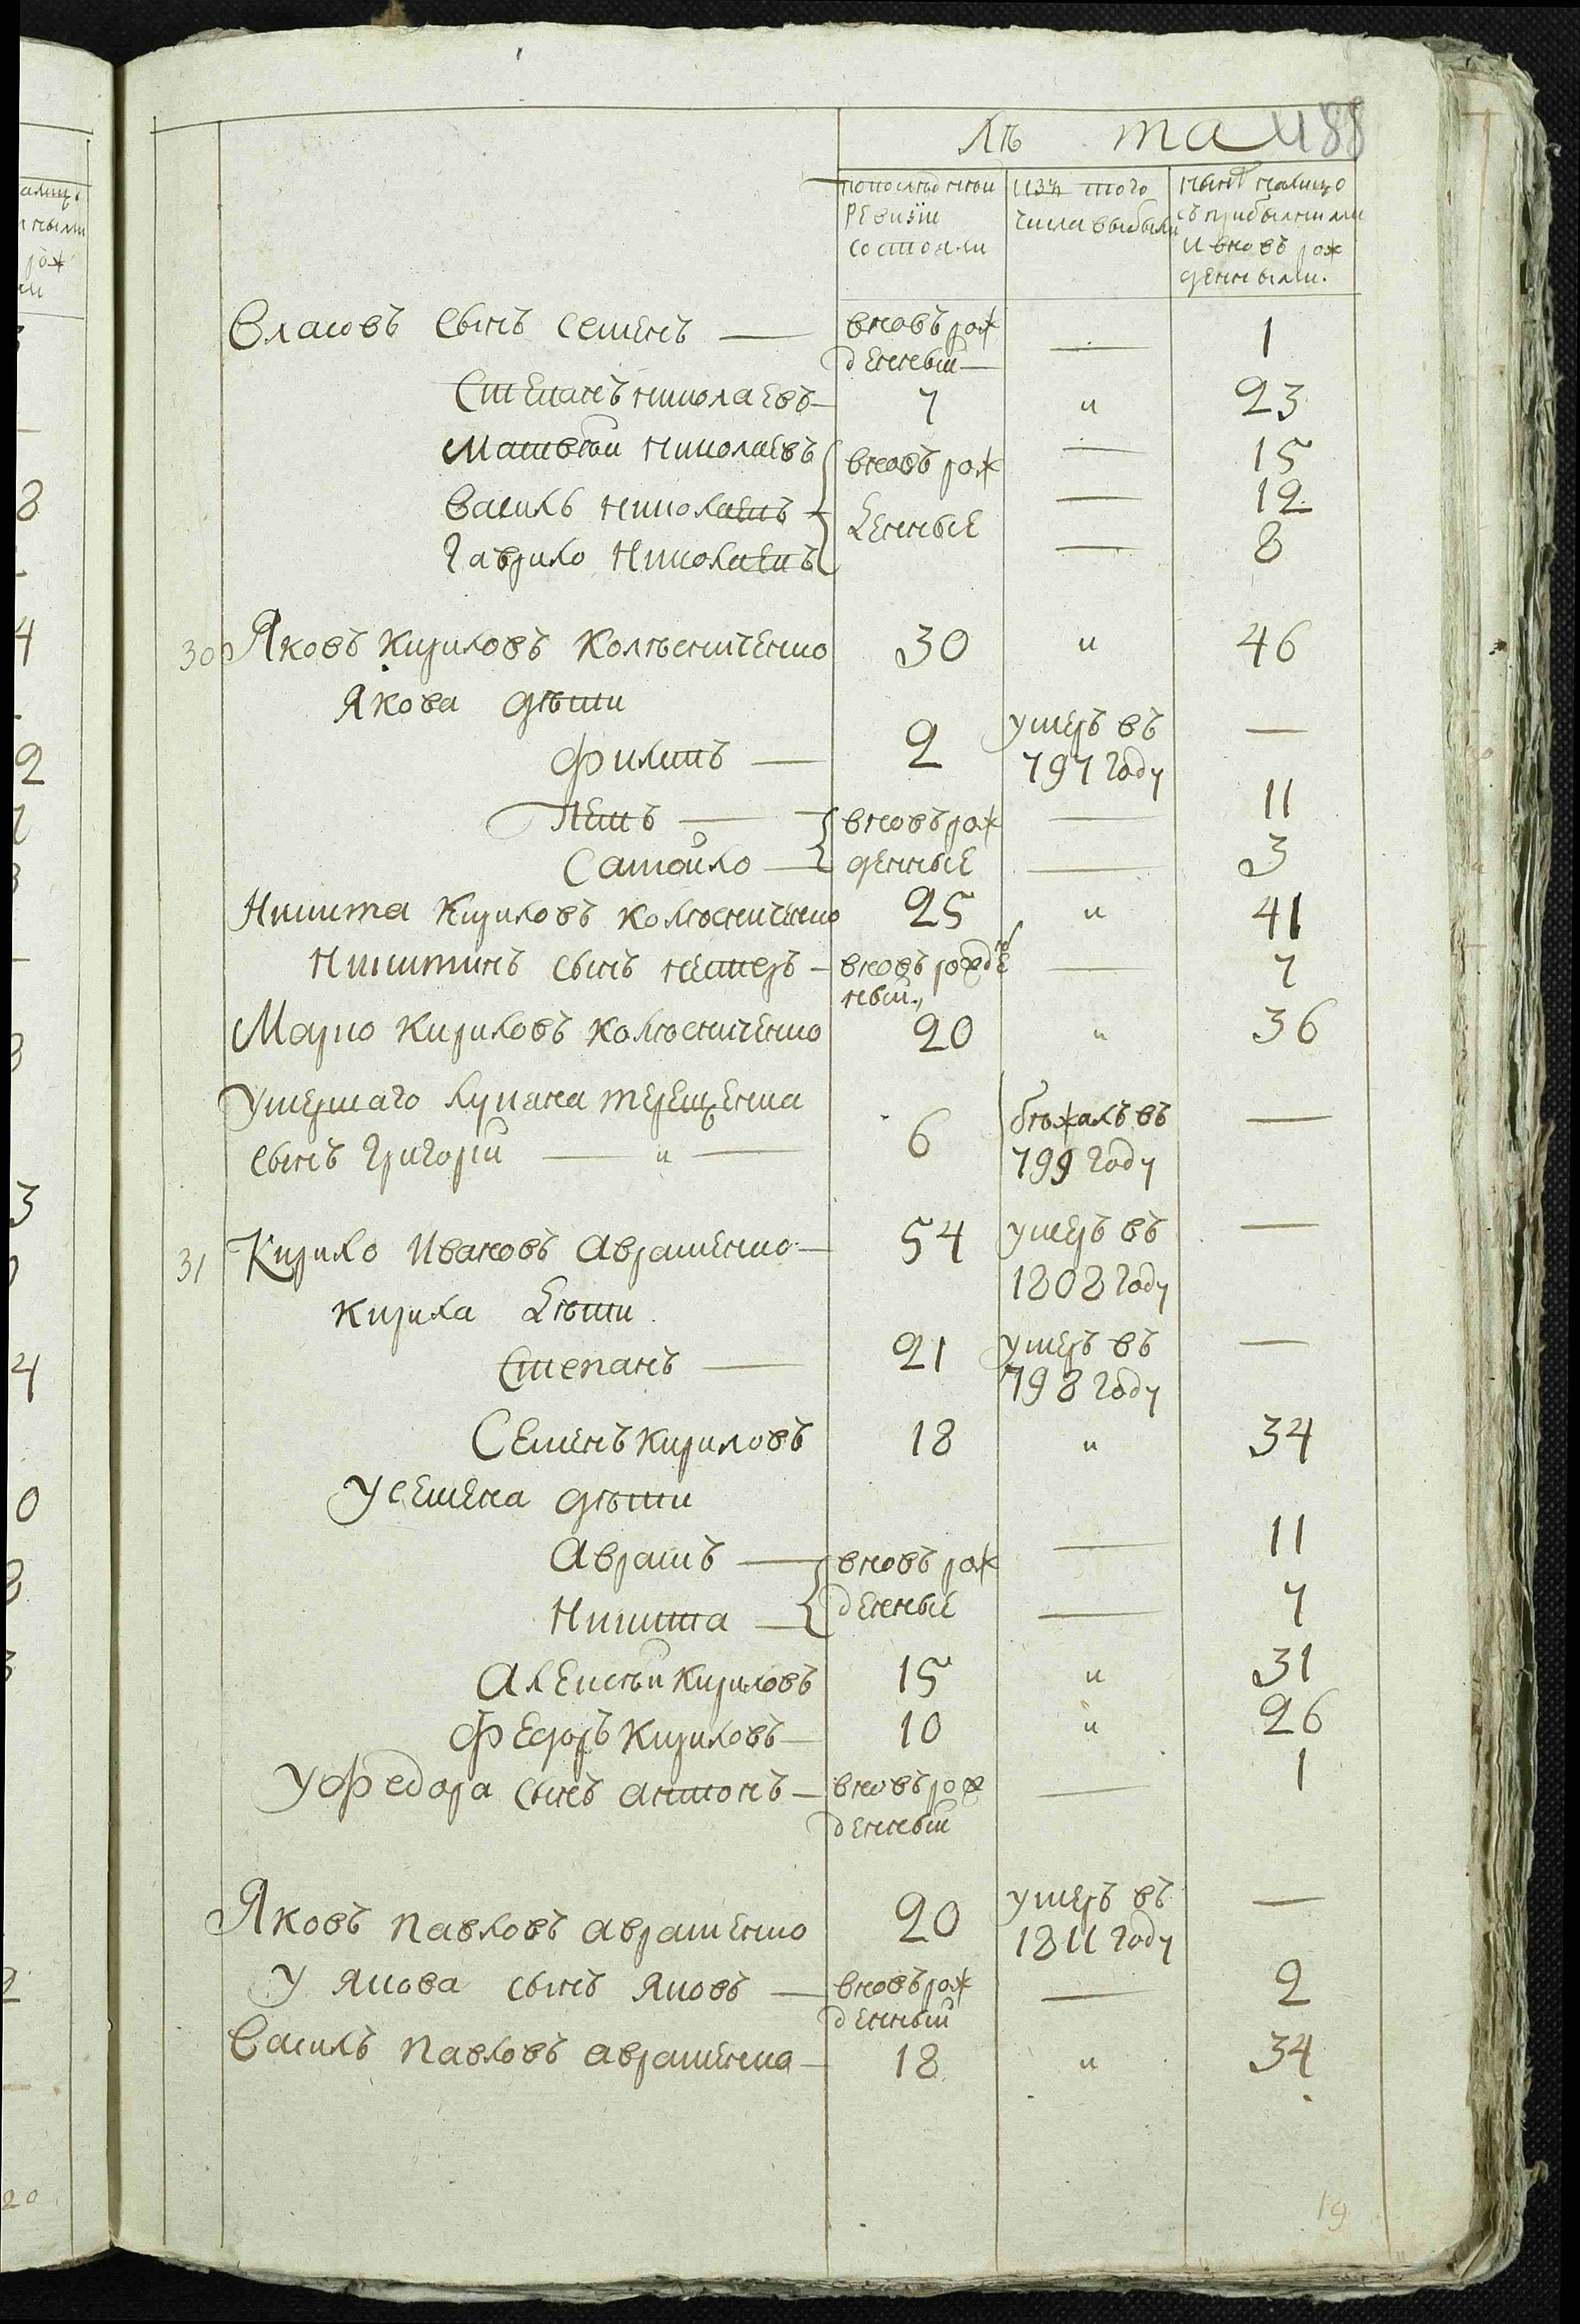 Лѣ та 488
по последней ревизіи состояли
изъ того числа выбыли
нынѣ налицо съ прибылыми и вновь рожденными.
Власовъ сынъ Семенъ — вновь рожденный — — 1
Степанъ Николаевъ — 7 „ 23
Матвей Николаевъ вновь рож — 15
Василь Николаевъ денные — 12
Гаврило Николаевъ — 8
30 Яковъ Кириловъ Колѣсниченко 30 „ 46
Якова дѣти
Филипъ — 2 умеръ въ 797 году —
Петръ — вновь рож — 11
Самойло — денные — 3
Никита Кириловъ Колѣсниченко 25 „ 41
Никитинъ сынъ Нестеръ — вновь рожденный — 7
Марко Кириловъ Колѣсниченко 20 „ 36
Умершаго Лукяна Терещенка
сынъ Григорій — „ — 6 бѣжалъ въ 799 году —
31 Кирило Ивановъ Авраменко — 54 умеръ въ 1808 году —
Кирила дѣти
Степанъ — 21 умеръ въ 798 году —
Семенъ Кириловъ 18 „ 34
У Семена дѣти
Аврамъ — вновь рож — 11
Никита — денные — 7
Алексѣй Кириловъ 15 „ 31
Федоръ Кириловъ — 10 „ 26
У Федора сынъ Антонъ — вновь рожденный — 1
Яковъ Павловъ Авраменко 20 умеръ въ 1811 году —
У Якова сынъ Яковъ — вновь рожденный — 2
Василь Павловъ Авраменко — 18 „ 34
19